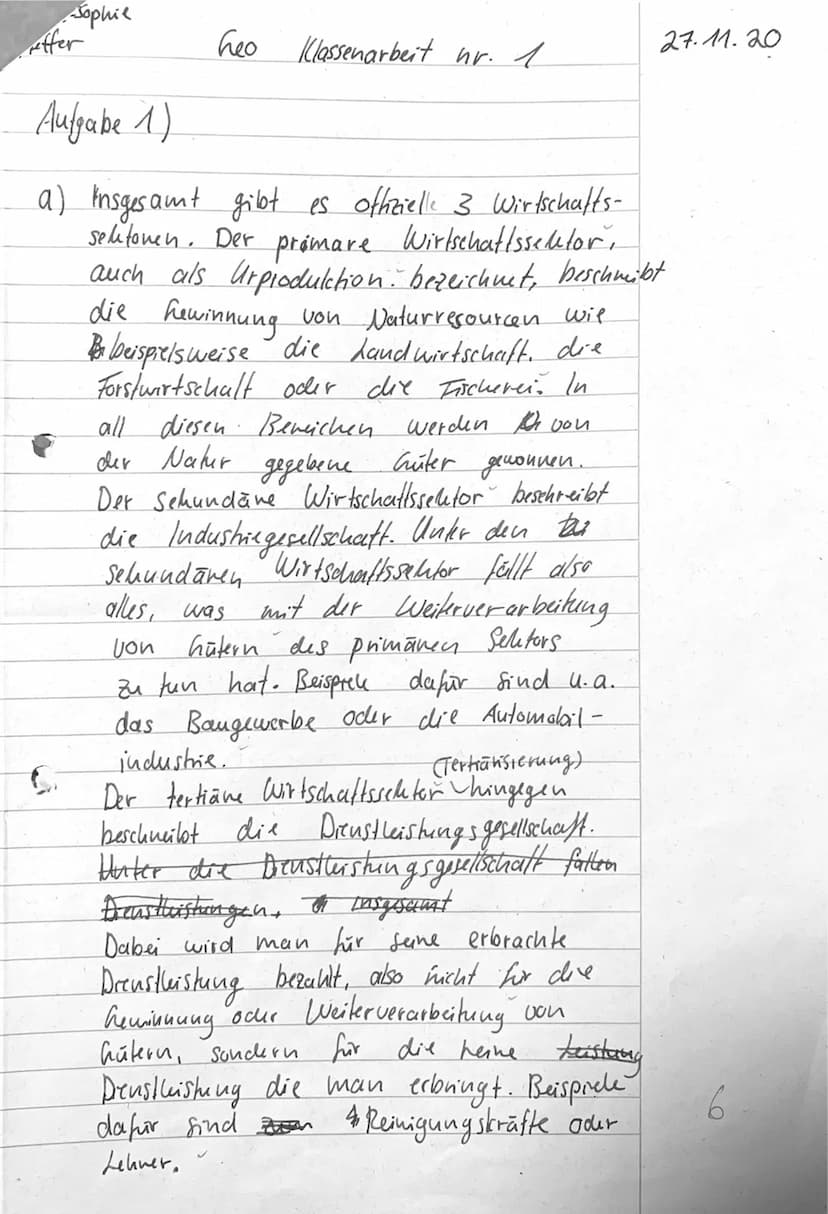 Sophie
Geo Klassenarbeit nr. 1
27.11.20
Aufgabe 1)
a) Insgesamt gibt es offizielle 3 Wirtschafts-
sektoren. Der primäre Wirtschaftssektor,
auch als Urproduktion bezeichnet, beschreibt
die Gewinnung von Naturresourcen wie
beispielsweise die Landwirtschaft, die
Forstwirtschaft oder die Fischerei. In
all diesen Bereichen werden von
der Natur gegebene Güter gewonnen.
Der sekundäre Wirtschaftssektor beschreibt
die Industriegesellschaft. Unter den
sekundären Wirtschaftssektor fällt also
alles, was mit der Weiterverarbeitung
von Gütern des primären Sektors
zu tun hat. Beispiele dafür sind u.a.
das Baugewerbe oder die Automobil-
industrie.
(Tertiärisierung)
Der tertiäre Wirtschaftssektor hingegen
beschreibt die Dienstleistungsgesellschaft.
Unter die Dienstleistungsgesellschaft fallen
Dienstleistungen, insgesamt
Dabei wird man für seine erbrachte
Dienstleistung bezahlt, also nicht für die
Gewinnung oder Weiterverarbeitung von
Gütern, sondern für die reine Leistung
Dienstleistung die man erbringt. Beispiele
dafür sind Reinigungskräfte oder
Lehrer.
6